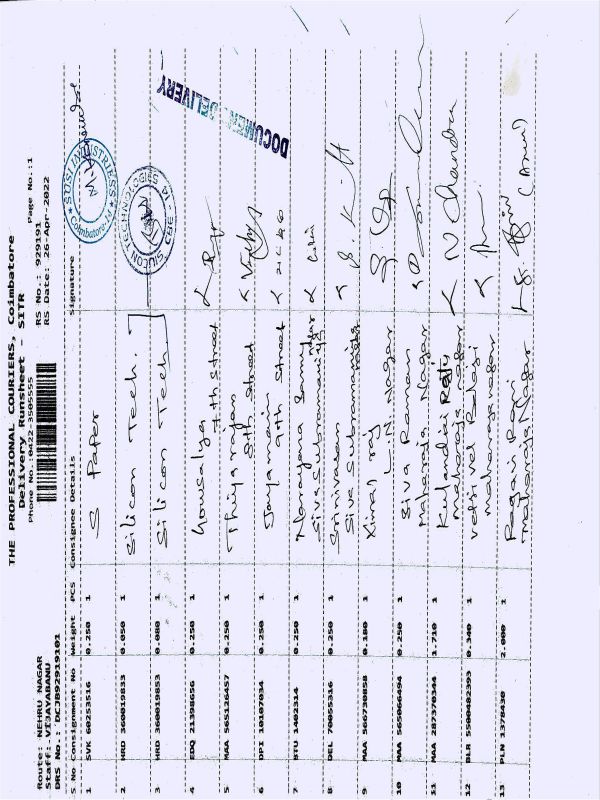 THE PROFESSIONAL COURIERS, Coimbatore
Delivery Runsheet - SITR
Phone No.:0422-3505555
Page No.:1
Route: NEHRU NAGAR
Staff: VIJAYABANU
DRS No.: DCJB92919101
RS No.: 929191
RS Date: 26-Apr-2022
S No Consignment No Weight PCS Consignee Details Signature
1 SVK 60253516 0.250 1 S Paper
SUSI INDUSTRIES
Coimbatore
2 HRD 360019833 0.050 1 Silicon Tech.
3 HRD 360019833 0.080 1 Silicon Tech
SILICON TECHNOLOGIES CBE-14
4 EDQ 21398656 0.250 1 Gowsalya
7th Street
5 MAA 565126457 0.250 1 Thiyarajan
8th Street
6 DPI 10107034 0.250 1 Jayamani
9th Street
DOCUMENT DELIVERY
7 STU 1402314 0.250 1 Narayana Samy
Siva Subramaniya nagar
8 DEL 70055316 0.250 1 Srinivasan
Siva Subramaniya
9 MAA 566730858 0.100 1 Raj
L.N. Nagar
10 MAA 565066494 0.250 1 Siva Raman
Maharaja Nagar
11 MAA 287370344 1.710 1
maharaja nagar
N Chandra
12 BLR 5500482393 0.340 1 Balaji
maharaja nagar
13 PLN 1378430 2.000 1
Maharaja Nagar